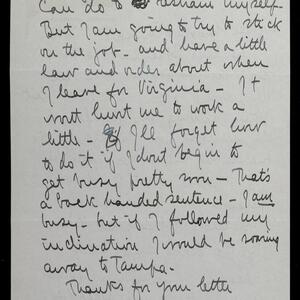 Can do to restrain myself-
But I am going to try to stick
on the job - and have a little
law and order about when
I leave for Virginia - It
wont hurt me to work a
little - I'll forget how
to do it if I dont begin to
get busy pretty soon - That's
a back handed sentence - I am
busy - but if I followed my
inclination I would be soaring
away to Tampa.
Thanks for your letter